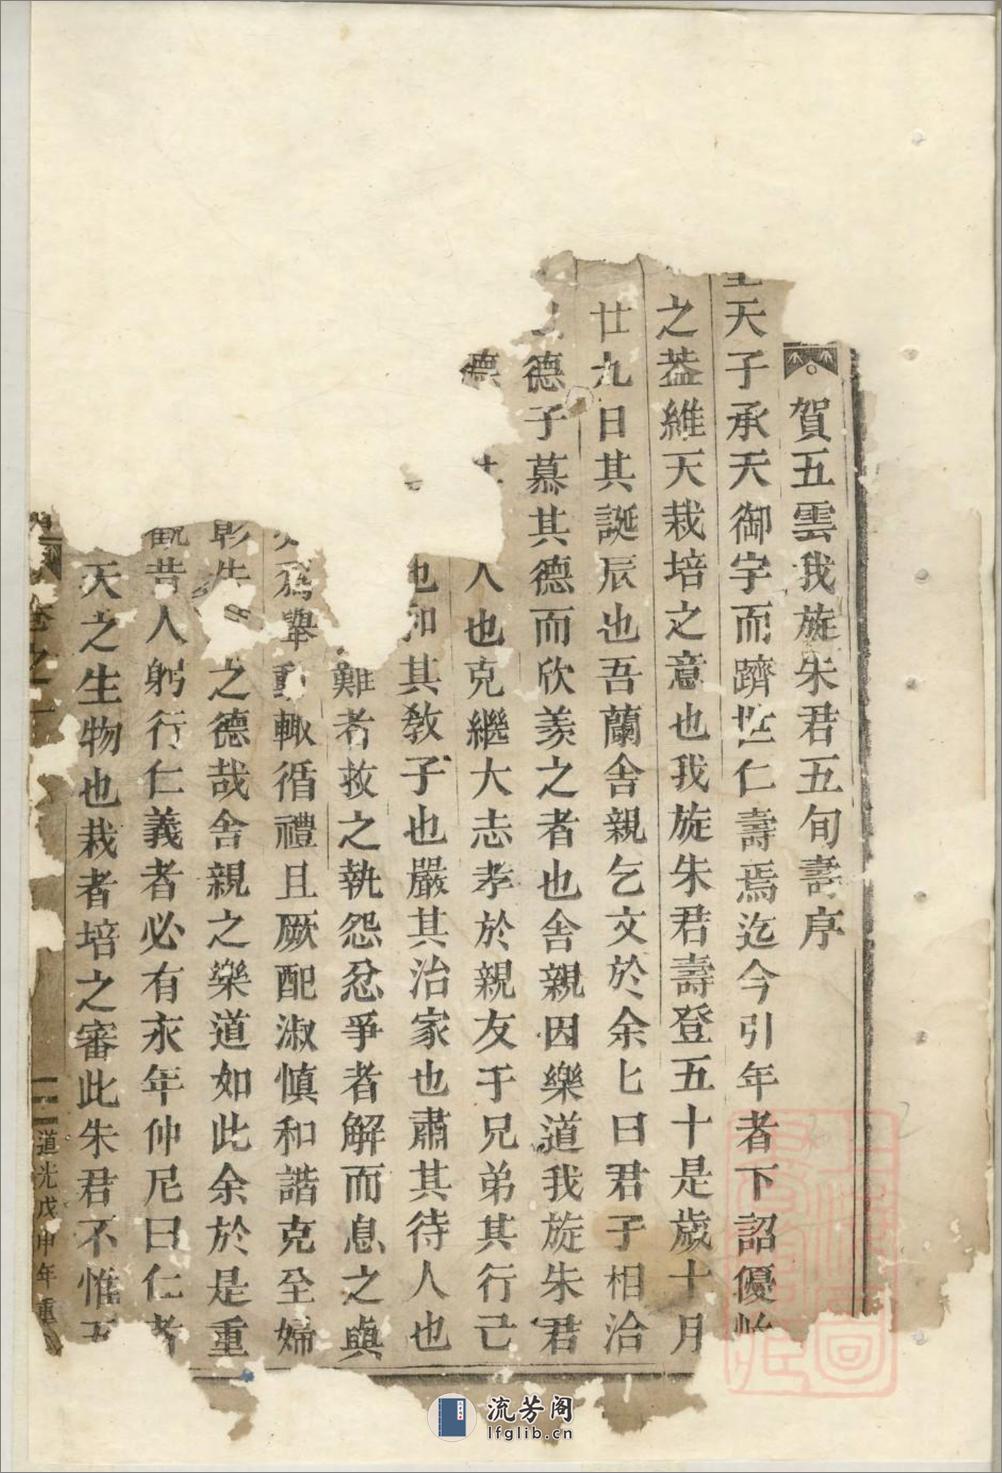 賀五雲我旋朱君五旬壽序
天子承天御宇而躋世仁壽焉迄今引年者下詔優
之葢維天栽培之意也我旋朱君壽登五十是歲十月
廿九日其誕辰也吾蘭舍親乞文於余匕曰君子相洽
德子慕其德而欣羨之者也舍親因樂道我旋朱君
德人也克繼大志孝於親友于兄弟其行己
也和其敎子也嚴其治家也肅其待人也
難者救之執怨忿爭者解而息之與
爲舉動輙循禮且厥配淑慎和諧克全婦
之德哉舍親之樂道如此余於是重
觀昔人躬行仁義者必有永年仲尼曰仁者
天之生物也栽者培之審此朱君不惟五
卷之一
二
道光戊申年重
流芳阁
lfglib.cn